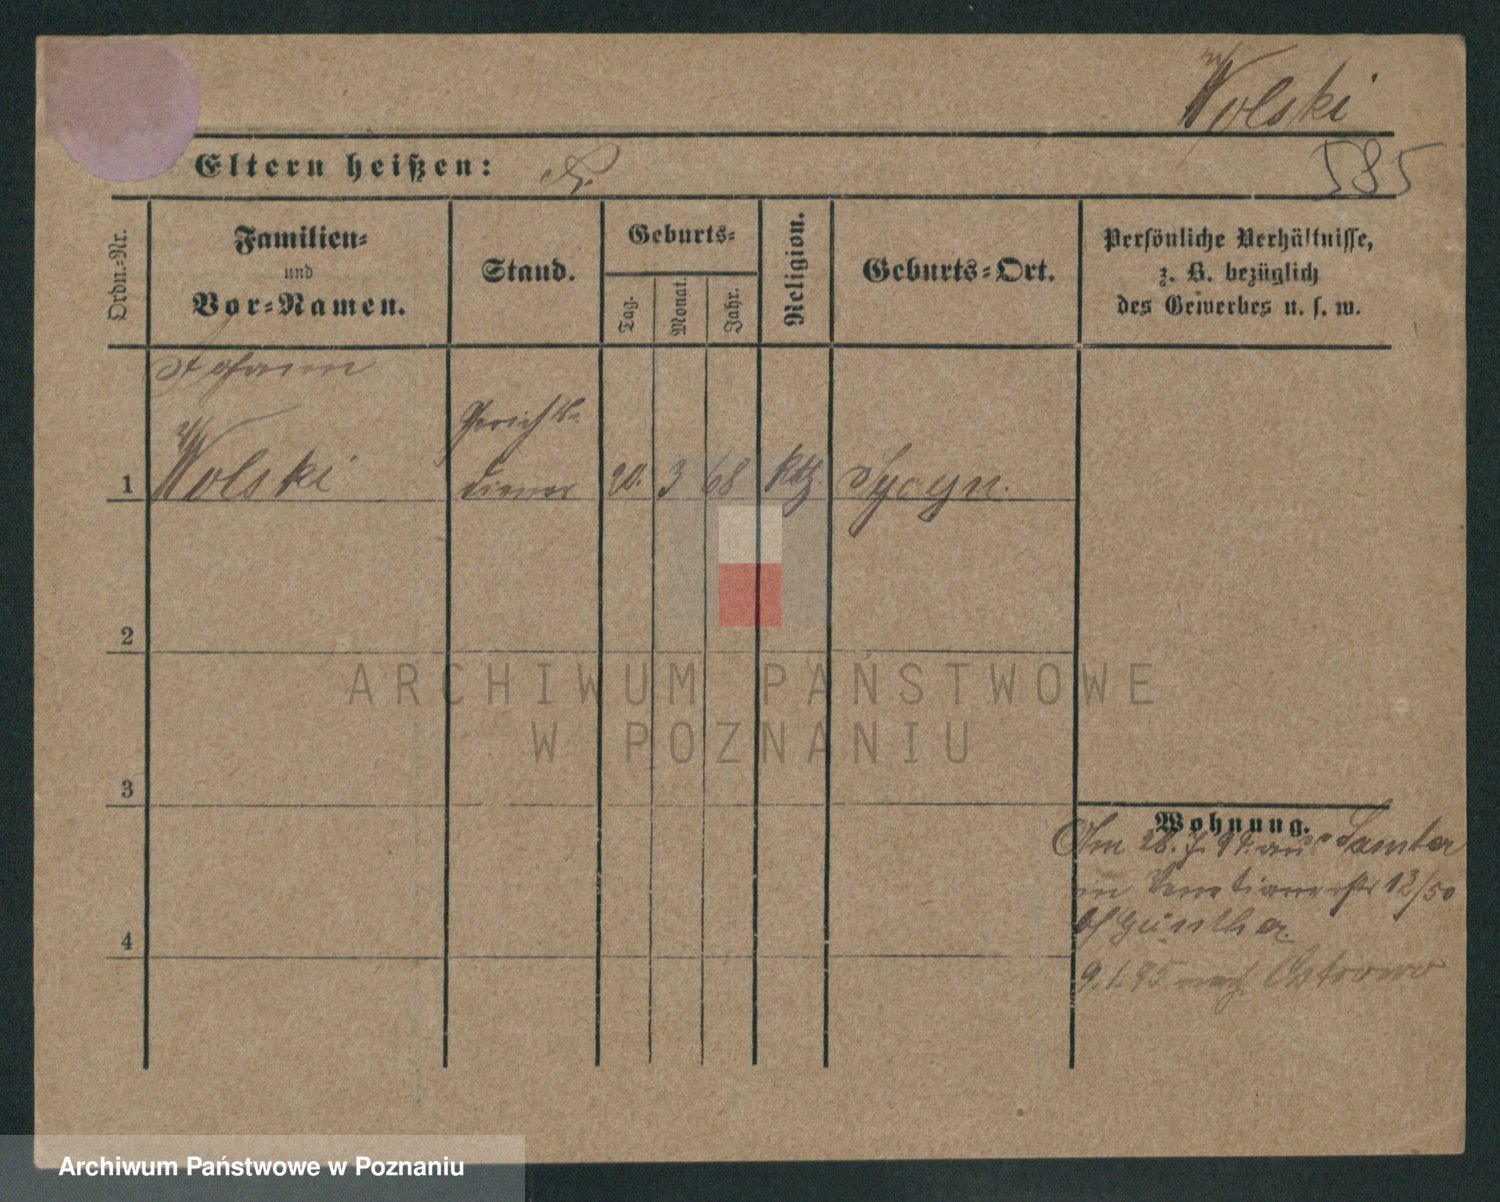 Wolski
585
Eltern heißen:
Ordn.-Nr.
Familien-
und
Vor-Namen.
Stand.
Geburts-
Tag.
Monat.
Jahr.
Religion.
Geburts-Ort.
Persönliche Verhältnisse,
z. B. bezüglich
des Gewerbes u. s. w.
Johann
Gerichts-
1 Wolski diener 20. 3 68 kth.
2
3
4
Wohnung.
Am 28. 7. 94. aus Samter
in Venetianerstr 12/50
b/ Günther.
9. 1. 95 nach Ostrowo
ARCHIWUM PAŃSTWOWE
W POZNANIU
Archiwum Państwowe w Poznaniu